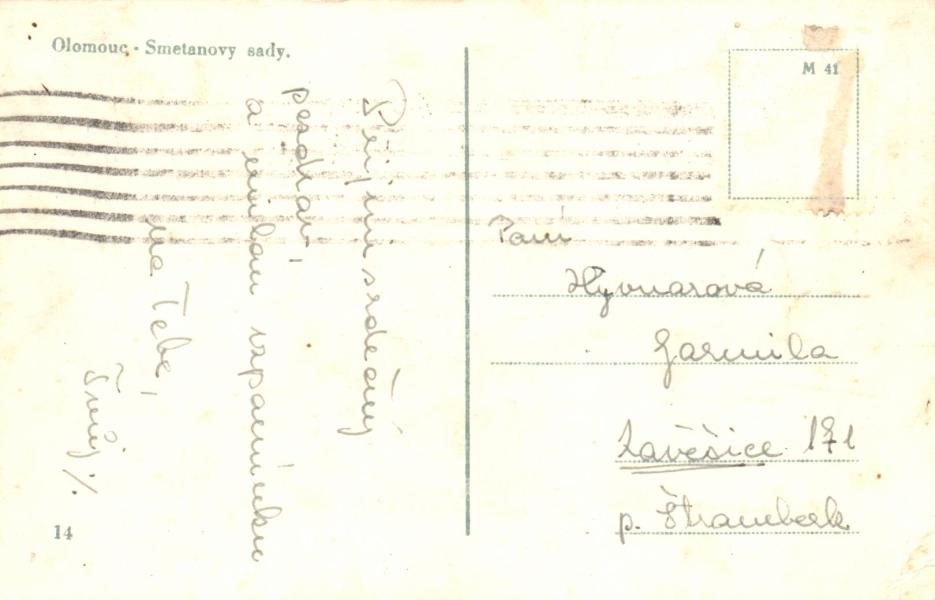 Olomouc - Smetanovy sady.
M 41
Přijmi srdečný
pozdrav
a milou vzpomínku
na Tebe,
14
Paní
Hyvnarová
Jarmila
Závěšice 171
p. Štramberk